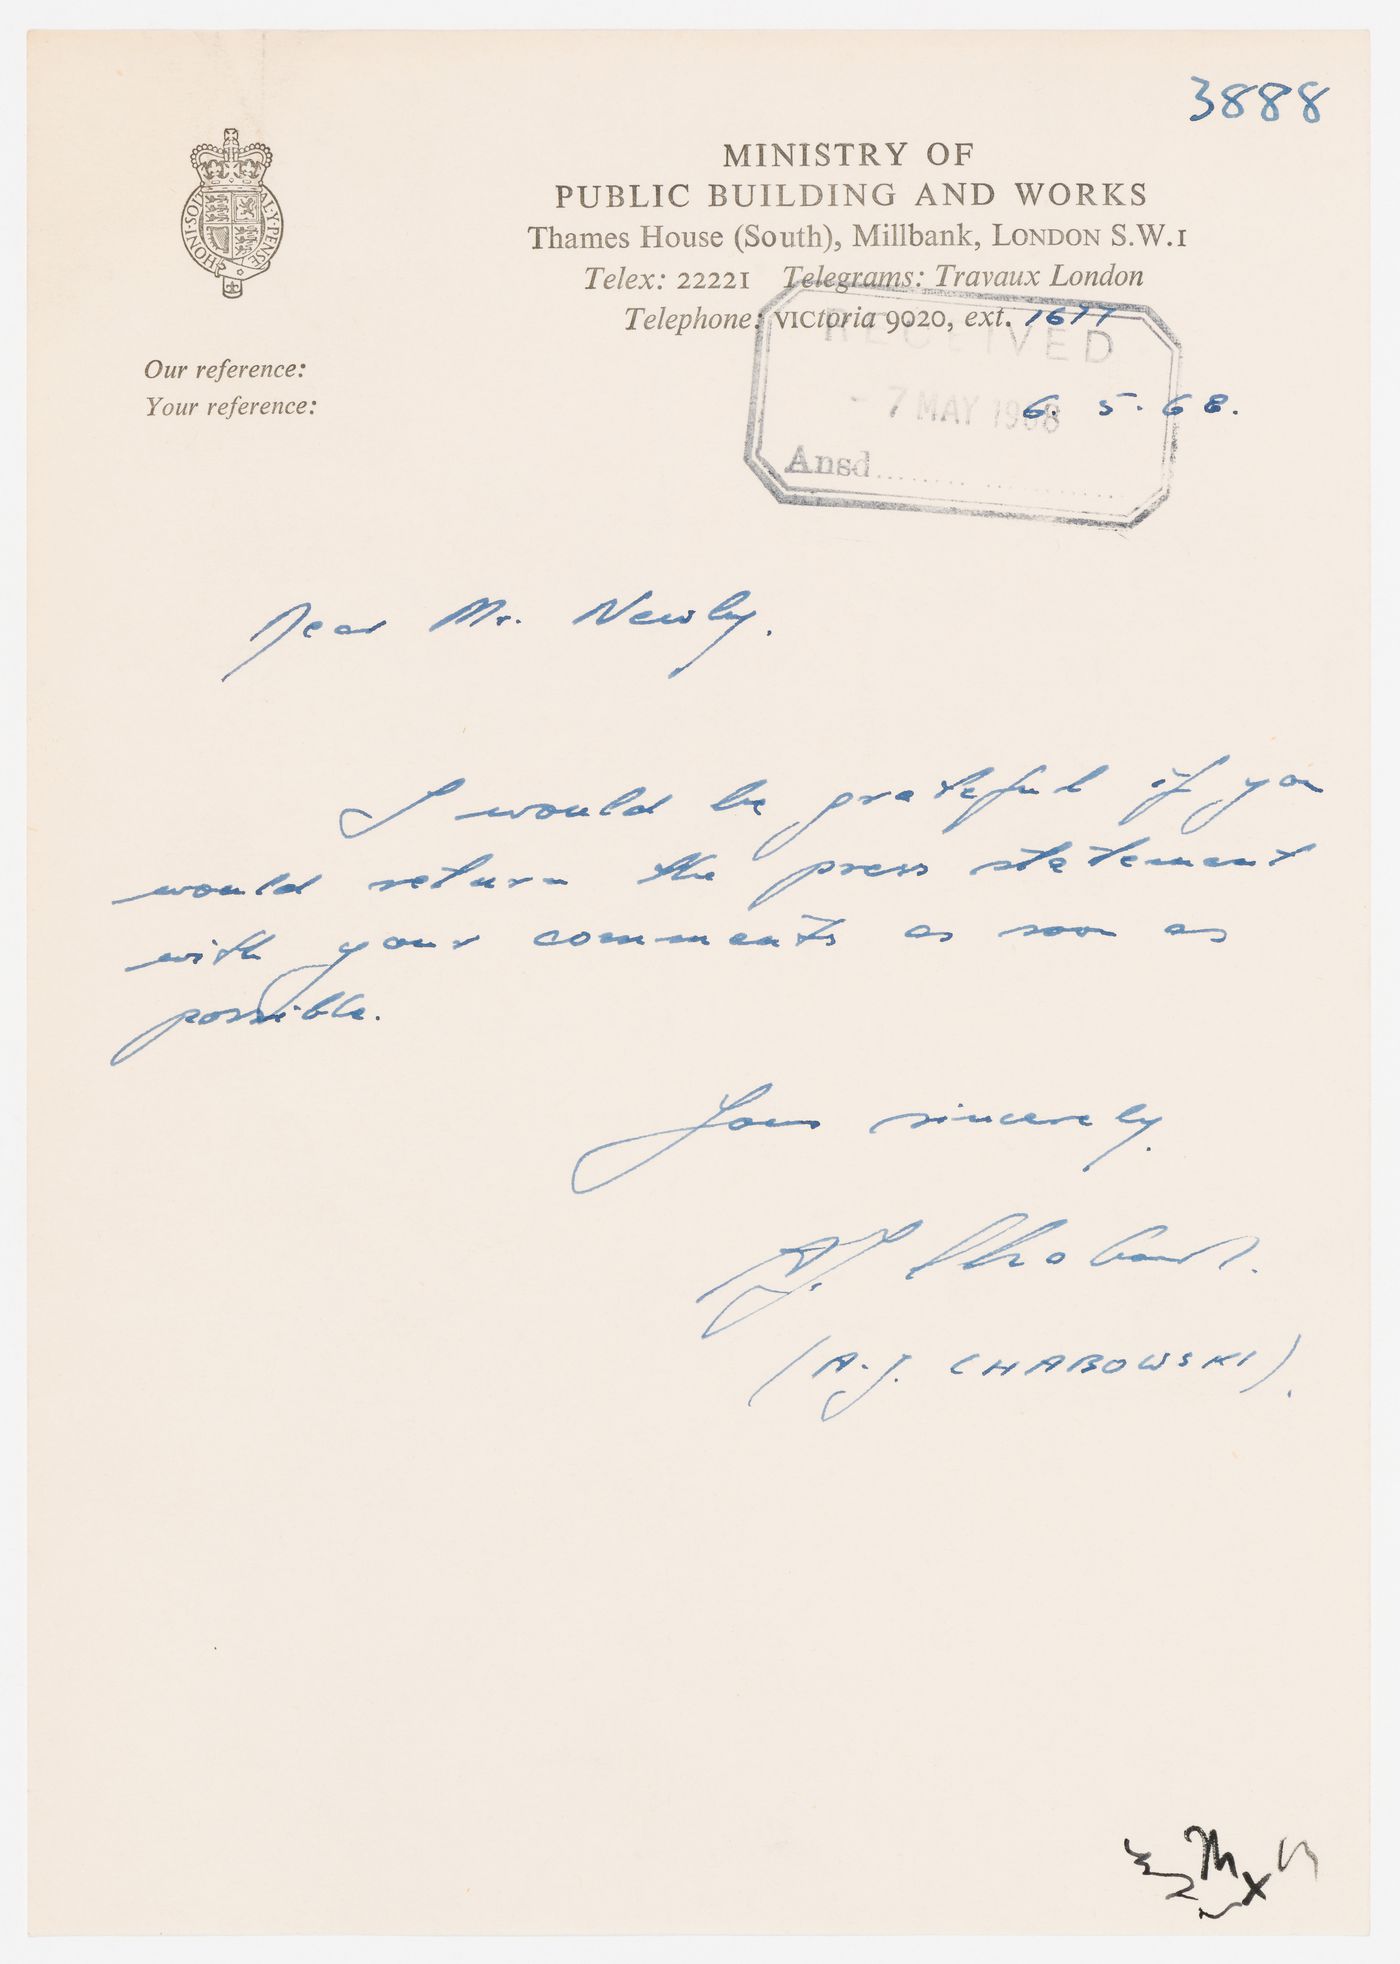 3888
MINISTRY OF
PUBLIC BUILDING AND WORKS
Thames House (South), Millbank, LONDON S.W.1
Telex: 22221 Telegrams: Travaux London
Telephone: VICtoria 9020, ext. 1677
RECEIVED
Our reference:
Your reference:
- 7 MAY 1968
6. 5. 68.
Ansd
HONI·SOIT
AL·Y·PENSE
Dear Mr. Newby,
I would be grateful if you
would return the press statement
with your comments as soon as
possible.
Yours sincerely,
A.J. Chabowski.
(A.J. CHABOWSKI).